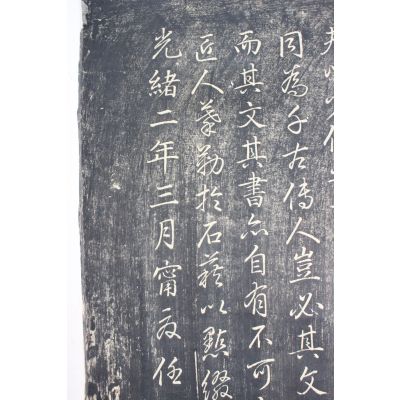 同為千古傳人豈必其文
而其文其書亦自有不可
匠人摹勒於石藉以點綴
光緒二年三月甯夜任